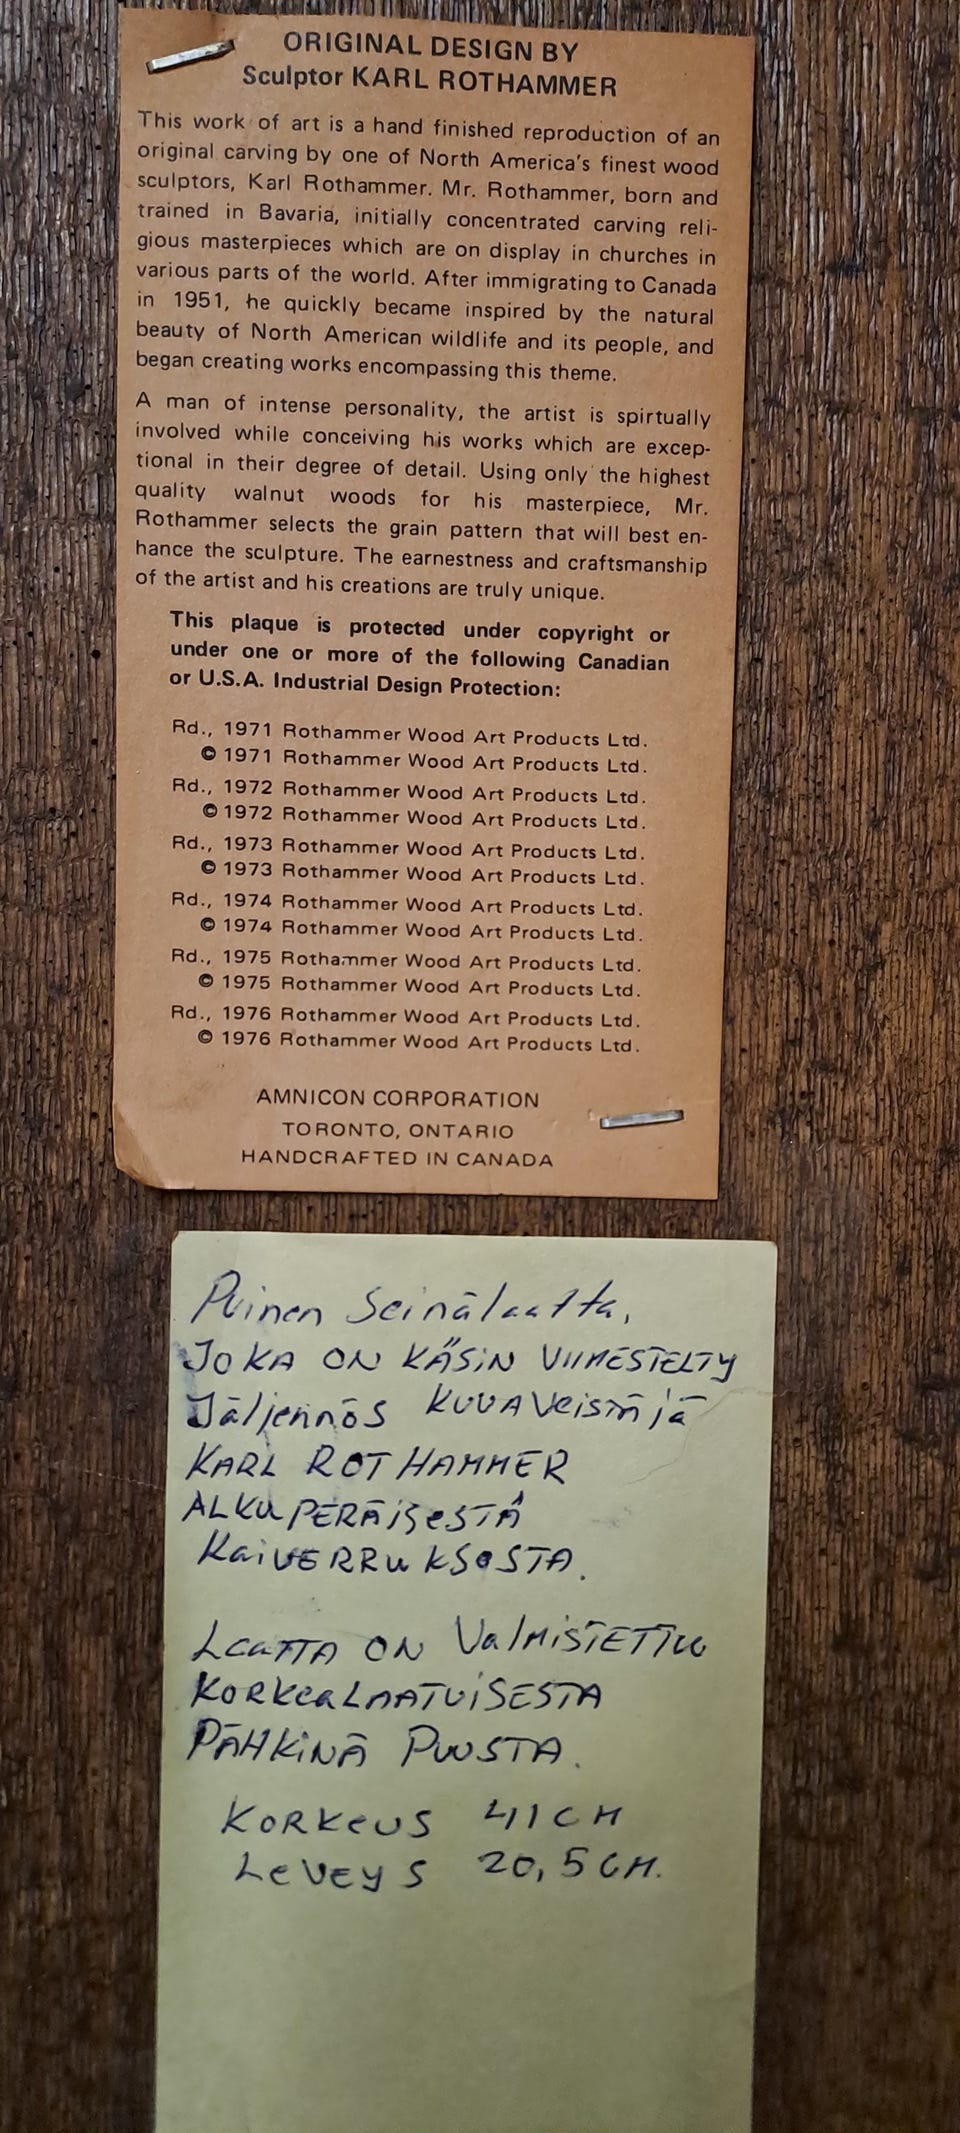 ORIGINAL DESIGN BY
Sculptor KARL ROTHAMMER
This work of art is a hand finished reproduction of an
original carving by one of North America's finest wood
sculptors, Karl Rothammer. Mr. Rothammer, born and
trained in Bavaria, initially concentrated carving reli-
gious masterpieces which are on display in churches in
various parts of the world. After immigrating to Canada
in 1951, he quickly became inspired by the natural
beauty of North American wildlife and its people, and
began creating works encompassing this theme.
A man of intense personality, the artist is spirtually
involved while conceiving his works which are excep-
tional in their degree of detail. Using only the highest
quality walnut woods for his masterpiece, Mr.
Rothammer selects the grain pattern that will best en-
hance the sculpture. The earnestness and craftsmanship
of the artist and his creations are truly unique.
This plaque is protected under copyright or
under one or more of the following Canadian
or U.S.A. Industrial Design Protection:
Rd., 1971 Rothammer Wood Art Products Ltd.
© 1971 Rothammer Wood Art Products Ltd.
Rd., 1972 Rothammer Wood Art Products Ltd.
© 1972 Rothammer Wood Art Products Ltd.
Rd., 1973 Rothammer Wood Art Products Ltd.
© 1973 Rothammer Wood Art Products Ltd.
Rd., 1974 Rothammer Wood Art Products Ltd.
© 1974 Rothammer Wood Art Products Ltd.
Rd., 1975 Rothammer Wood Art Products Ltd.
© 1975 Rothammer Wood Art Products Ltd.
Rd., 1976 Rothammer Wood Art Products Ltd.
© 1976 Rothammer Wood Art Products Ltd.
AMNICON CORPORATION
TORONTO, ONTARIO
HANDCRAFTED IN CANADA
Puinen Seinälaatta,
JOKA ON KÄSIN VIIMESTELTY
Jäljennös KUVAVeistäjä
KARL ROTHAMMER
ALKUPERÄISeSTÄ
KaiVERRUKSOSTA.
LaaTTA ON ValMISTETTU
KORKeaLAATUISESTA
PÄHKINÄ PUUSTA.
KORKeUS 41 CM
LeVeyS 20,5 CM.